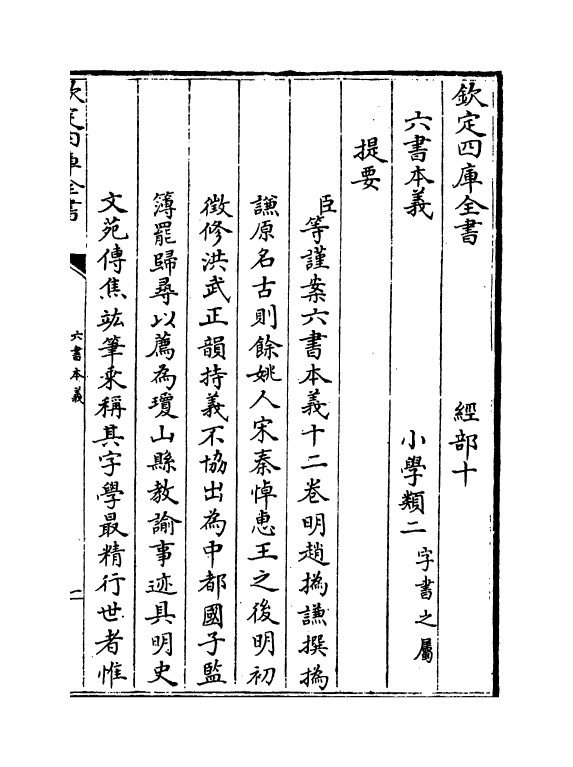 欽定四庫全書　經部十
六書本義　小學類二字書之屬
提要
臣等謹案六書本義十二卷明趙撝謙撰撝
謙原名古則餘姚人宋秦悼惠王之後明初
徴修洪武正韻持義不協出為中都國子監
簿罷歸尋以薦為瓊山縣教諭事迹具明史
文苑傳焦竑筆乘稱其字學最精行世者惟
欽定四庫全書
六書本義